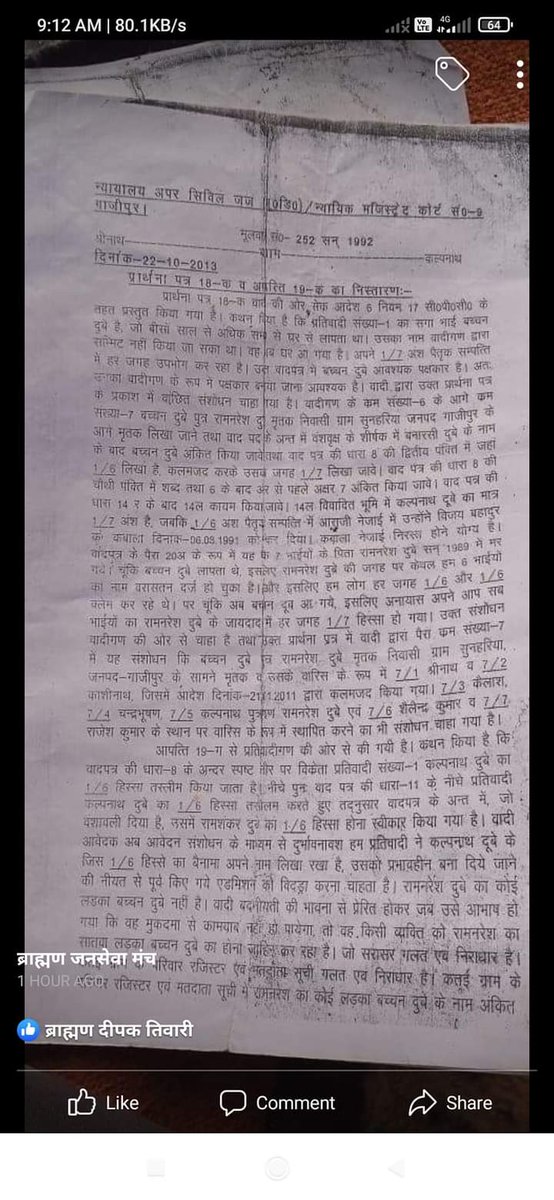 9:12 AM | 80.1KB/s
Vo LTE 4G 64
न्यायालय अपर सिविल जज /न्यायिक मजिस्ट्रेट कोर्ट सं0-9
गाजीपुर।
मूलवाद सं0- 252 सन् 1992
श्रीनाथ बनाम कल्पनाथ
दिनांक-22-10-2013
प्रार्थना पत्र 18-क व आपत्ति 19-क का निस्तारण:-
प्रार्थना पत्र 18-क वादी की ओर से आदेश 6 नियम 17 सी0पी0सी0 के
तहत प्रस्तुत किया गया है। कथन किया है कि प्रतिवादी संख्या-1 का सगा भाई बच्चन
दुबे है, जो बीसों साल से अधिक समय से घर से लापता था। उसका नाम वादीगण द्वारा
सम्मिट नहीं किया जा सका था। वह अब घर आ गया है। अपने 1/7 अंश पैतृक सम्पत्ति
में हर जगह उपभोग कर रहा है। उक्त वादपत्र में बच्चन दुबे आवश्यक पक्षकार है। अतः
उनका वादीगण के रूप में पक्षकार बनाया जाना आवश्यक है। वादी द्वारा उक्त प्रार्थना पत्र
के प्रकाश में वांछित संशोधन चाहा गया है। वादीगण के कम संख्या-6 के आगे कम
संख्या-7 बच्चन दुबे पुत्र रामनरेश दुबे मृतक निवासी ग्राम सुनहरिया जनपद गाजीपुर के
आगे मृतक लिखा जाने तथा वाद पत्र के अन्त में वंशवृक्ष के शीर्षक में बनारसी दुबे के नाम
के बाद बच्चन दुबे अंकित किया जावे तथा वाद पत्र की धारा 8 की द्वितीय पंक्ति में जहां
1/6 लिखा है, कलमजद करके उसके जगह 1/7 लिखा जावे। वाद पत्र की धारा 8 की
चौथी पंक्ति में शब्द तथा 6 के बाद और से पहले अक्षर 7 अंकित किया जावे। वाद पत्र की
धारा 14 र के बाद 14ल कायम किया जावे। 14ल विवादित भूमि में कल्पनाथ दूबे का मात्र
1/7 अंश है, जबकि 1/6 अंश पैतृक सम्पत्ति में आराजी नेजाई में उन्होंने विजय बहादुर
के कबाला दिनांक-06.03.1991 को कर दिया। कबाला नेजाई निरस्त होने योग्य है।
वादपत्र के पैरा 20अ के रूप में यह कि 7 भाईयों के पिता रामनरेश दुबे सन् 1989 में मर
गये। चूंकि बच्चन दुबे लापता थे, इसलिए रामनरेश दुबे की जगह पर केवल हम 6 भाईयों
का नाम वरासतन दर्ज हो चुका है। और इसलिए हम लोग हर जगह 1/6 और 1/6
क्लेम कर रहे थे। पर चूंकि अब बच्चन दूबे आ गये, इसलिए अनायास अपने आप सब
भाईयों का रामनरेश दुबे के जायदाद में हर जगह 1/7 हिस्सा हो गया। उक्त संशोधन
वादीगण की ओर से चाहा है तथा उक्त प्रार्थना पत्र में वादी द्वारा पैरा कम संख्या-7
में यह संशोधन कि बच्चन दुबे पुत्र रामनरेश दुबे मृतक निवासी ग्राम सुनहरिया,
जनपद-गाजीपुर के सामने मृतक व उसके वारिस के रूप में 7/1 श्रीनाथ व 7/2
काशीनाथ, जिसमें आदेश दिनांक-21.11.2011 द्वारा कलमजद किया गया। 7/3 कैलाश,
7/4 चन्द्रभूषण, 7/5 कल्पनाथ पुत्रगण रामनरेश दुबे एवं 7/6 शैलेन्द्र कुमार व 7/7
राजेश कुमार के स्थान पर वारिस के रूप में स्थापित करने का भी संशोधन चाहा गया है।
आपत्ति 19-ग से प्रतिवादीगण की ओर से की गयी है। कथन किया है कि
वादपत्र की धारा-8 के अन्दर स्पष्ट तौर पर विकेता प्रतिवादी संख्या-1 कल्पनाथ दुबे का
1/6 हिस्सा तस्लीम किया जाता है। नीचे पुनः वाद पत्र की धारा-11 के नीचे प्रतिवादी
कल्पनाथ दुबे का 1/6 हिस्सा तस्लीम करते हुए तद्नुसार वादपत्र के अन्त में, जो
वंशावली दिया है, उसमें रामशंकर दुबे का 1/6 हिस्सा होना स्वीकार किया गया है। वादी
आवेदक अब आवेदन संशोधन के माध्यम से दुर्भावनावश हम प्रतिवादी ने कल्पनाथ दूबे के
जिस 1/6 हिस्से का बैनामा अपने नाम लिखा रखा है, उसको प्रभावहीन बना दिये जाने
की नीयत से पूर्व किए गये एडमिशन को विदड्रा करना चाहता है। रामनरेश दुबे का कोई
लड़का बच्चन दुबे नहीं है। वादी बदनीयती की भावना से प्रेरित होकर जब उसे आभाष हो
गया कि वह मुकदमा से कामयाब नहीं हो पायेगा, तो वह किसी व्यक्ति को रामनरेश का
सातवा लड़का बच्चन दुबे का होना जाहिर कर रहा है। जो सरासर गलत एवं निराधार है।
परिवार रजिस्टर एवं मतदाता सूची गलत एवं निराधार है। कतई ग्राम के
परिवार रजिस्टर एवं मतदाता सूची में रामनरेश का कोई लड़का बच्चन दुबे के नाम अंकित
ब्राह्मण जनसेवा मंच
1 HOUR AGO
ब्राह्मण दीपक तिवारी
Like Comment Share